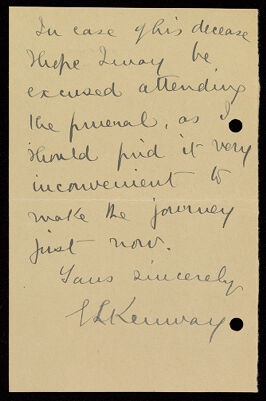 In case of his decease
I hope I may be
excused attending
the funeral, as I
should find it very
inconvenient to
make the journey
just now.
Yours sincerely
E L Kenway